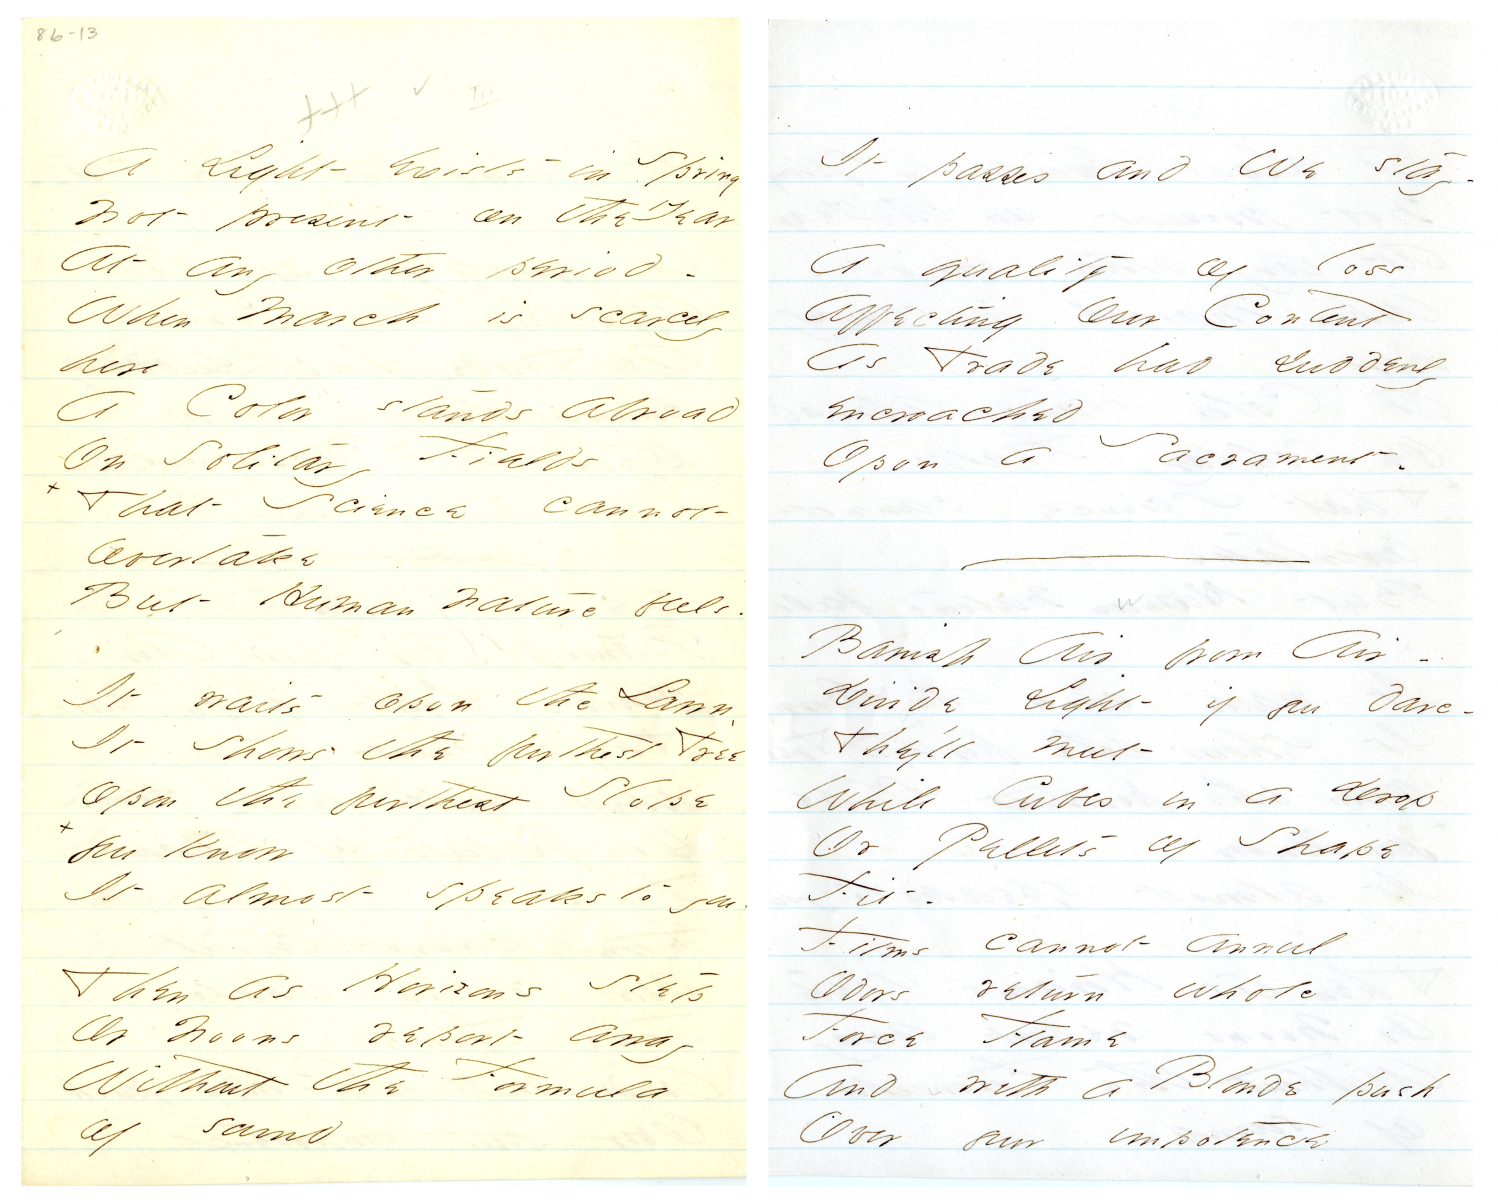 86-13
+++ ✓ III
A Light exists in Spring
Not present on the Year
At any other period -
When March is scarcely
here
A Color stands abroad
On Solitary Fields
+ That Science cannot
Overtake
But Human Nature feels.
It waits upon the Lawn,
It shows the furthest Tree
Upon the furthest Slope
+ you know
It almost speaks to you.
Then as Horizons step
Or Noons report away
Without the Formula
of sound
It passes and We stay -
A quality of loss
Affecting Our Content
As Trade had suddenly
encroached
Upon a Sacrament.
Banish Air from Air -
Divide Light if you dare -
They'll meet
While Cubes in a Drop
Or Pellets of Shape
Fit -
Films cannot annul
Odors return whole
Force Flame
And with a Blonde push
Over your impotence